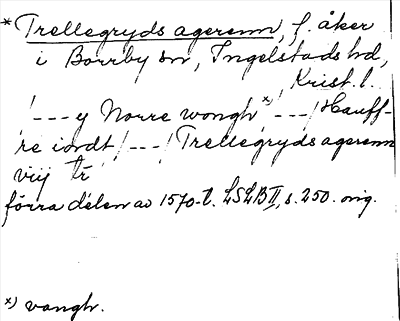 * Trellegryds agerenn, f. åker
i Borrby sn, Ingelstads hd,
Krist. l.
/---y Norre wongh x) /---/ Hauff-
re iordt /---/ Trellegryds agerenn
viij tr
förra delen av 1570-t. LSLB II, s. 250. orig.
x) vongh.